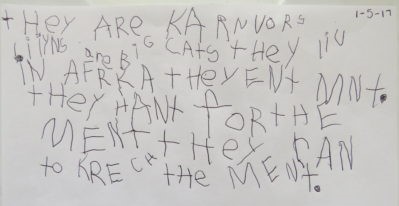 tHey ARE KARNVORS 1-5-17
liIYNS are BiG CAts tHey liV
iN AFRKA tHeY ENt MNt.
tHeY HANt FOR tHE
MENt tHeY CAN
to KRE Ca tHe MENt.